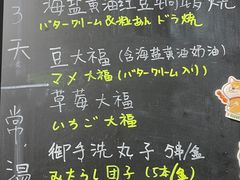 海鹽黃油紅豆銅鑼燒
バタークリーム&粒あん ドラ焼
3天
豆大福 (含海鹽黃油奶油)
マメ大福 (バタークリーム入り)
草莓大福
いちご大福
常溫
御手洗丸子 5串/盒
みたらし団子 (5本/盒)